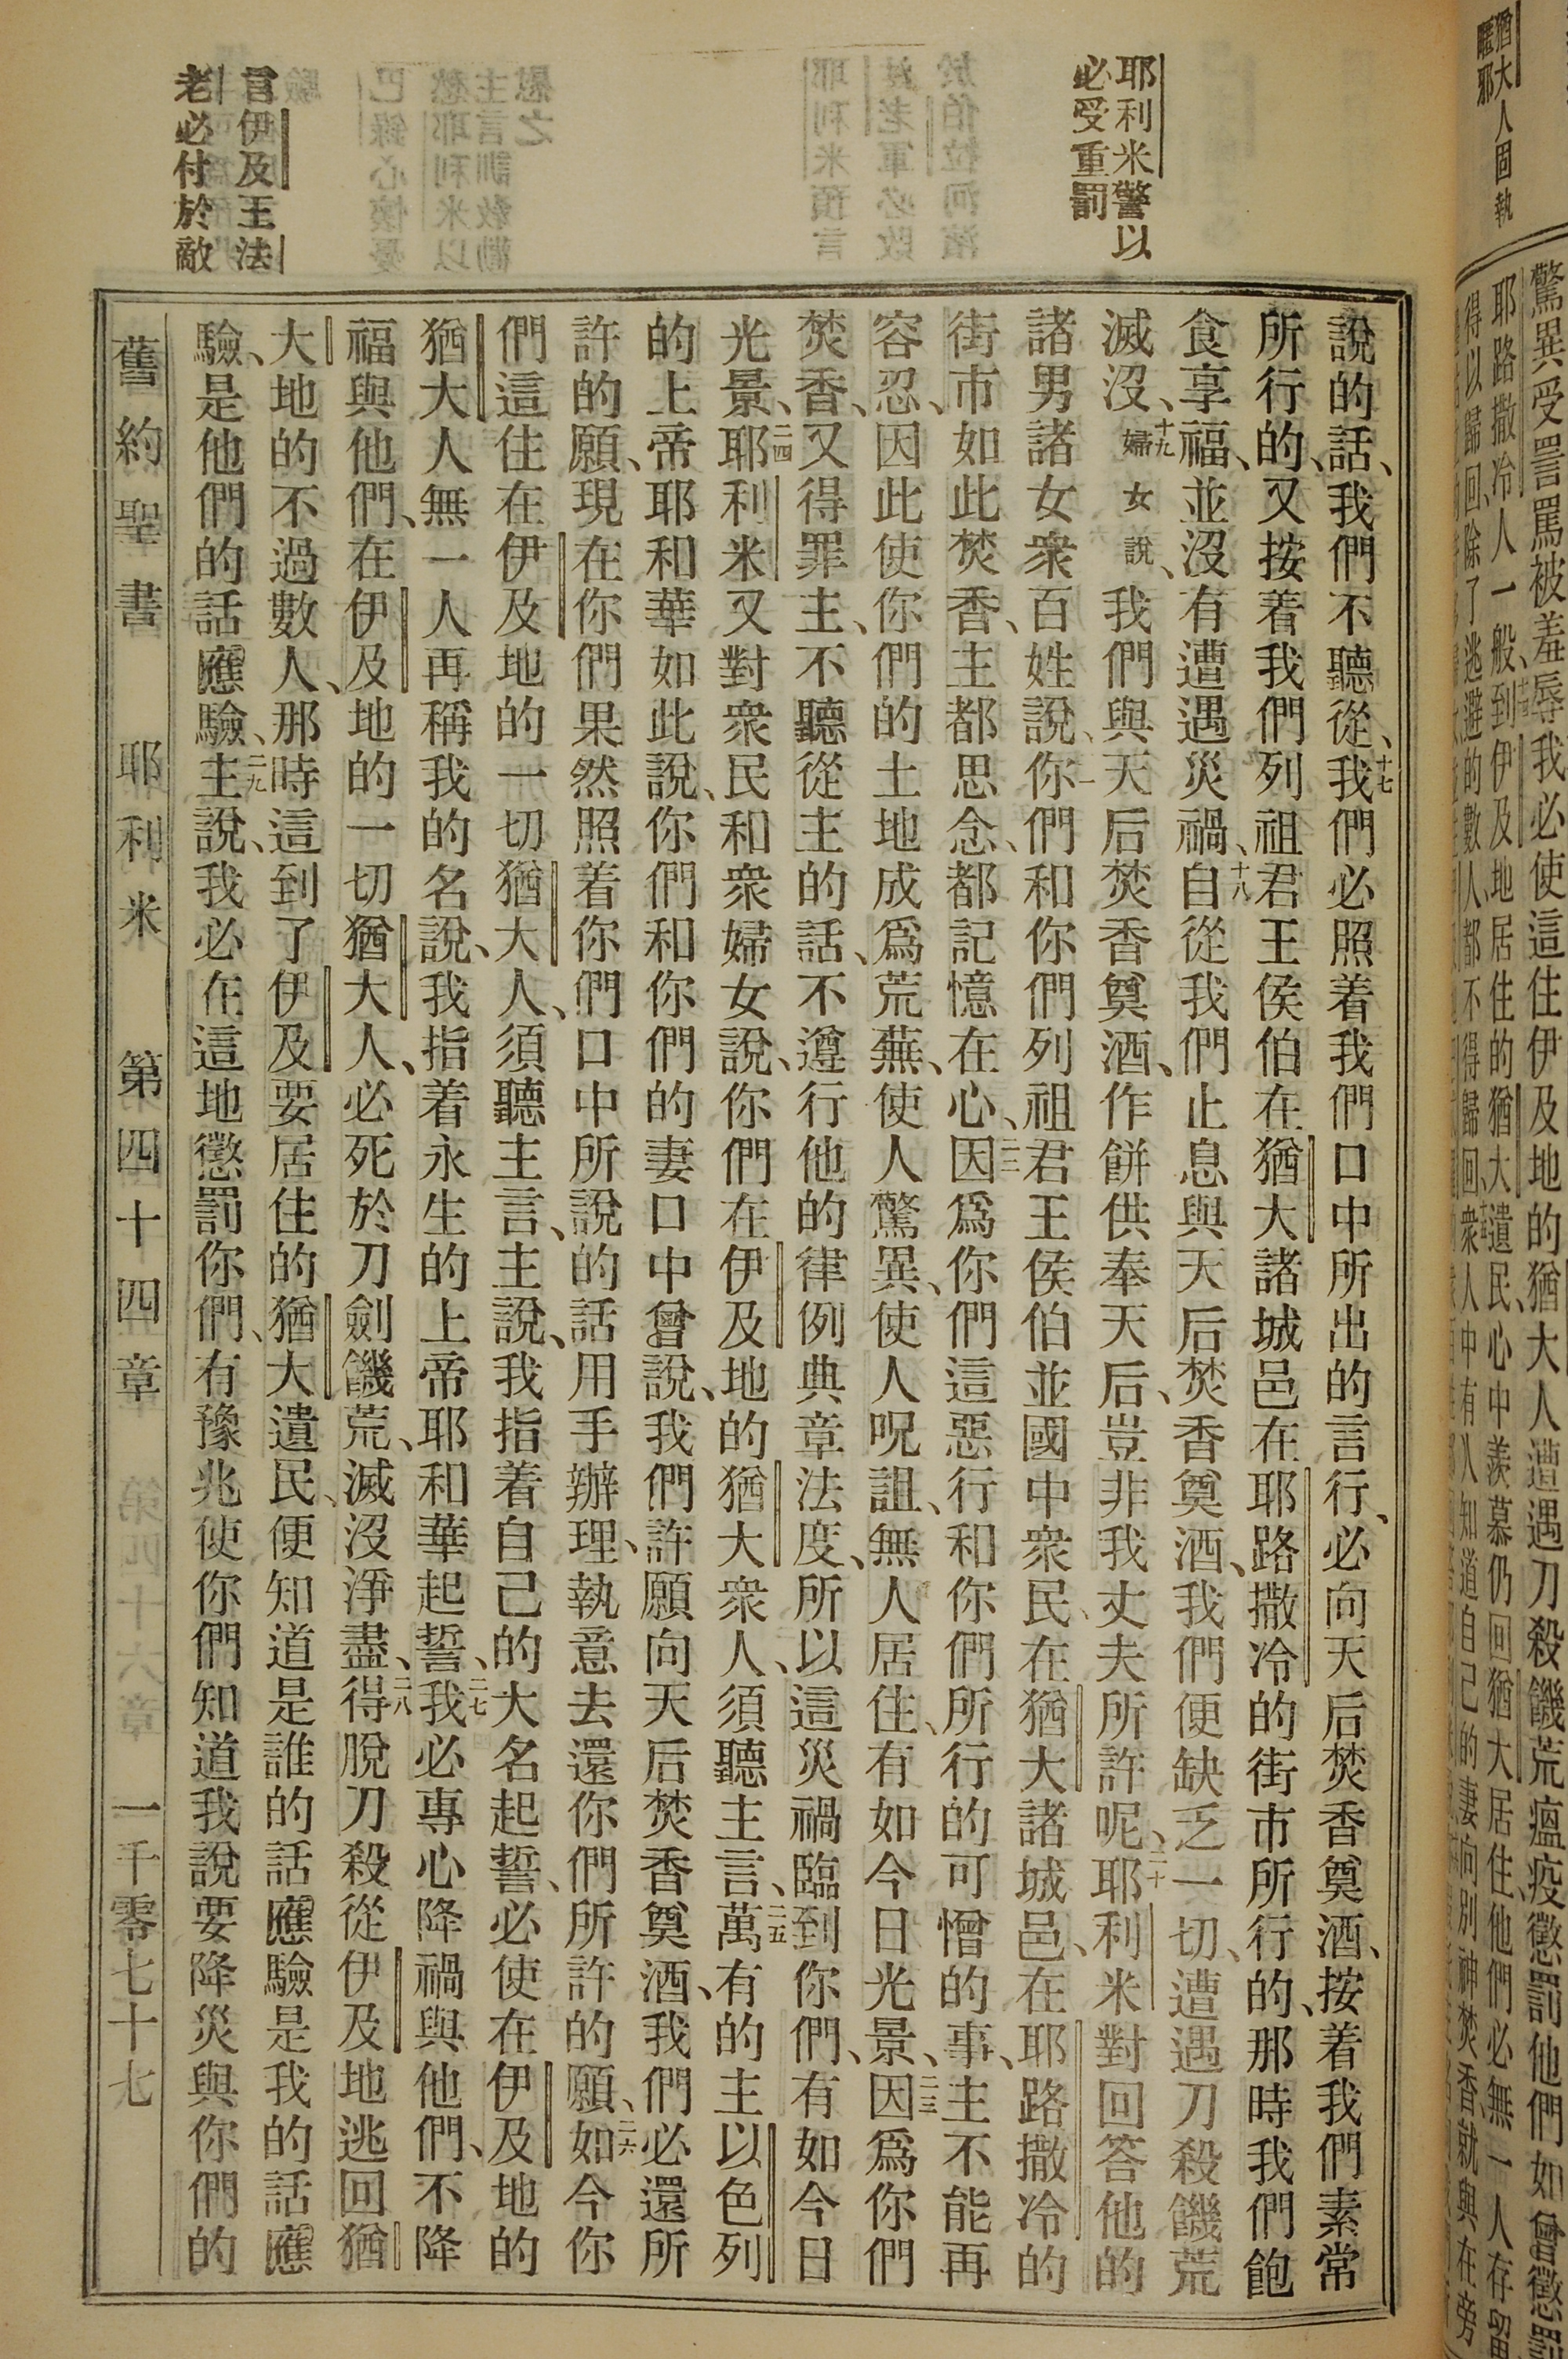 耶利米警以
必受重罰
言伊及王法
老必付於敵
說的話、我們不聽從、十七我們必照着我們口中所出的言行、必向天后焚香奠酒、按着我們素常
所行的、又按着我們列祖君王侯伯在猶大諸城邑在耶路撒冷的街市所行的、那時我們飽
食享福、並沒有遭遇災禍、十八自從我們止息與天后焚香奠酒、我們便缺乏一切、遭遇刀殺饑荒
滅沒、十九婦女說、我們與天后焚香奠酒、作餅供奉天后、豈非我丈夫所許呢、二十耶利米對回答他的
諸男諸女衆百姓說、你們和你們列祖君王侯伯並國中衆民、在猶大諸城邑、在耶路撒冷的
街市如此焚香、主都思念、都記憶在心、二二因爲你們這惡行和你們所行的可憎的事、主不能再
容忍、因此使你們的土地成爲荒蕪、使人驚異、使人呪詛、無人居住、有如今日光景、二三因爲你們
焚香、又得罪主、不聽從主的話、不遵行他的律例典章法度、所以這災禍臨到你們、有如今日
光景、二四耶利米又對衆民和衆婦女說、你們在伊及地的猶大衆人、須聽主言、二五萬有的主以色列
的上帝耶和華如此說、你們和你們的妻口中曾說、我們許願向天后焚香奠酒、我們必還所
許的願、現在你們果然照着你們口中所說的話用手辦理、執意去還你們所許的願、二六如今你
們這住在伊及地的一切猶大人、須聽主言、主說、我指着自己的大名起誓、必使在伊及地的
猶大人無一人再稱我的名說、我指着永生的上帝耶和華起誓、二七我必專心降禍與他們、不降
福與他們、在伊及地的一切猶大人、必死於刀劍饑荒、滅沒淨盡、二八得脫刀殺從伊及地逃回猶
大地的不過數人、那時這到了伊及要居住的猶大遺民、便知道是誰的話應驗是我的話應
驗、是他們的話應驗、二九主說、我必在這地懲罰你們、有豫兆使你們知道我說要降災與你們的
舊約聖書 耶利米 第四十四章 一千零七十七